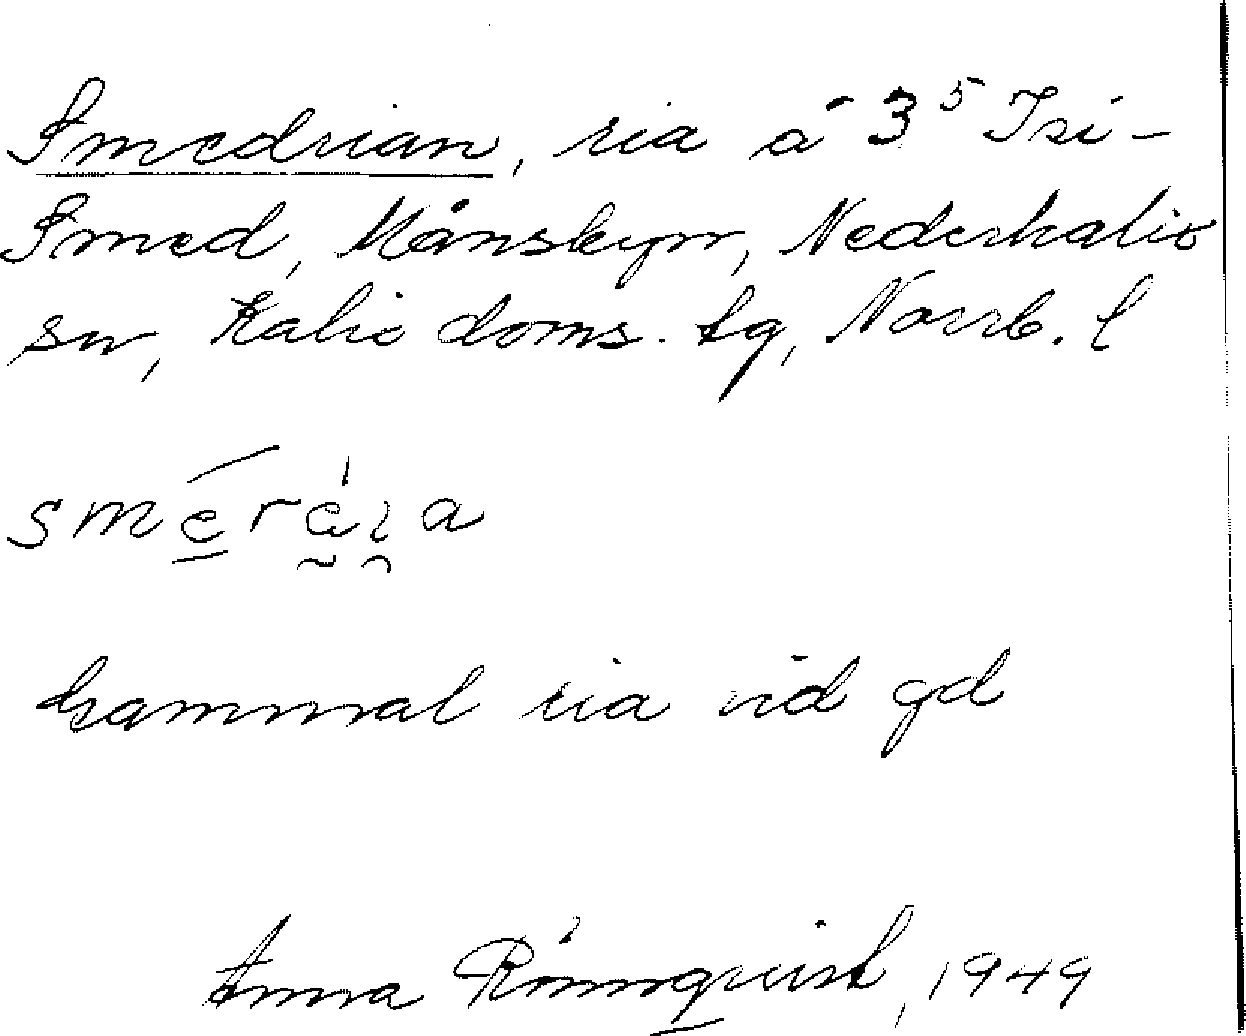 Smedrian, ria å 3⁵ Isi-
Smed, Månsbyn, Nederkalix
sn, Kalix doms. tg, Norrb. l
gammal ria vid gd
Anna Rönnqvist, 1949